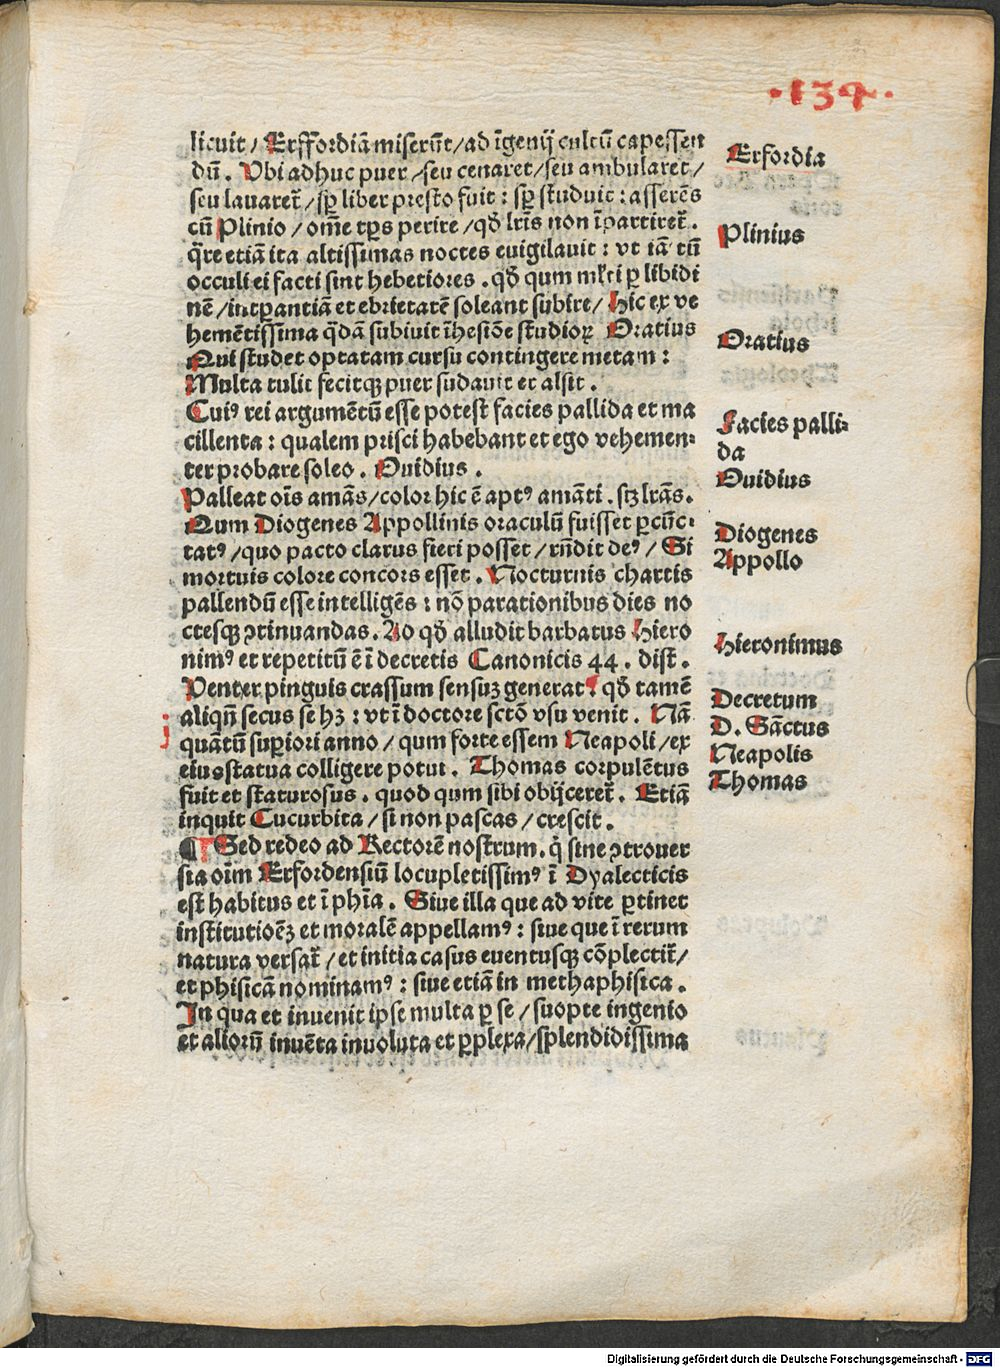 ·134·
licuit / Erffordiā miserūt / ad īgenij cultū capessen
dū . Vbi adhuc puer / seu cenaret / seu ambularet /
seu lauaret̄ / sꝑ liber presto fuit : sꝑ studuit : asserēs
cū Plinio / om̄e tꝑs perire / qđ lr̄is non īpartiret̄ .
q̄re etiā ita altissimas noctes euigilauit : vt iā tū
occuli ei facti sint hebetiores . qđ qum ml̄ti ꝑ libidi
nē / intꝑantiā et ebrietatē soleant subire / Hic ex ve
hemētissima q̄dā subiuit īhesiōe studioꝝ Oratius
Qui studet optatam cursu contingere metam :
Multa tulit fecitqꝫ puer sudauit et alsit .
Cuiꝰ rei argumētū esse potest facies pallida et ma
cillenta : qualem prisci habebant et ego vehemen⸗
ter probare soleo . Ouidius .
Palleat oīs amās / color hic ē aptꝰ amāti . sꝫ lrās .
Qum Diogenes Appollinis oraculū fuisset ꝑcūc⸗
tatꝰ / quo pacto clarus fieri posset / rn̄dit deꝰ / Si
mortuis colore concors esset . Nocturnis chartis
pallendū esse intelligēs : nō parationibus dies no
ctesqꝫ ꝯtinuandas . Ad qđ alludit barbatus Hiero
nimꝰ et repetitū ē ī decretis Canonicis 44 . dist .
Venter pinguis crassum sensuꝫ generat : qđ tamē
aliqn̄ secus se hꝫ : vt ī doctore sctō vsu venit . Nā
quātū suꝑiori anno / qum forte essem Neapoli / ex
eius statua colligere potui . Thomas corpulētus
fuit et staturosus . quod qum sibi obijceret̄ . Etiā
inquit Cucurbita / si non pascas / crescit .
¶ Sed redeo ad Rectorē nostrum . q̇ sine ꝯtrouer
sia oīm Erfordensiū locupletissimꝰ ī Dyalecticis
est habitus et ī phīa . Siue illa que ad vite ꝑtinet
institutioēꝫ et moralē appellamꝰ : siue que ī rerum
natura versat̄ / et initia casus euentusqꝫ cōplectit̄ /
et phisicā nominamꝰ : siue etiā in methaphisica .
In qua et inuenit ipse multa ꝑ se / suopte ingenio
et aliorū inuēta inuoluta et ꝑplexa / splendidissima
Erfordia
Plinius
Oratius
Facies palli⸗
da
Ouidius
Diogenes
Appollo
Hieronimus
Decretum
D. Sāctus
Neapolis
Thomas
Digitalisierung gefördert durch die Deutsche Forschungsgemeinschaft - DFG